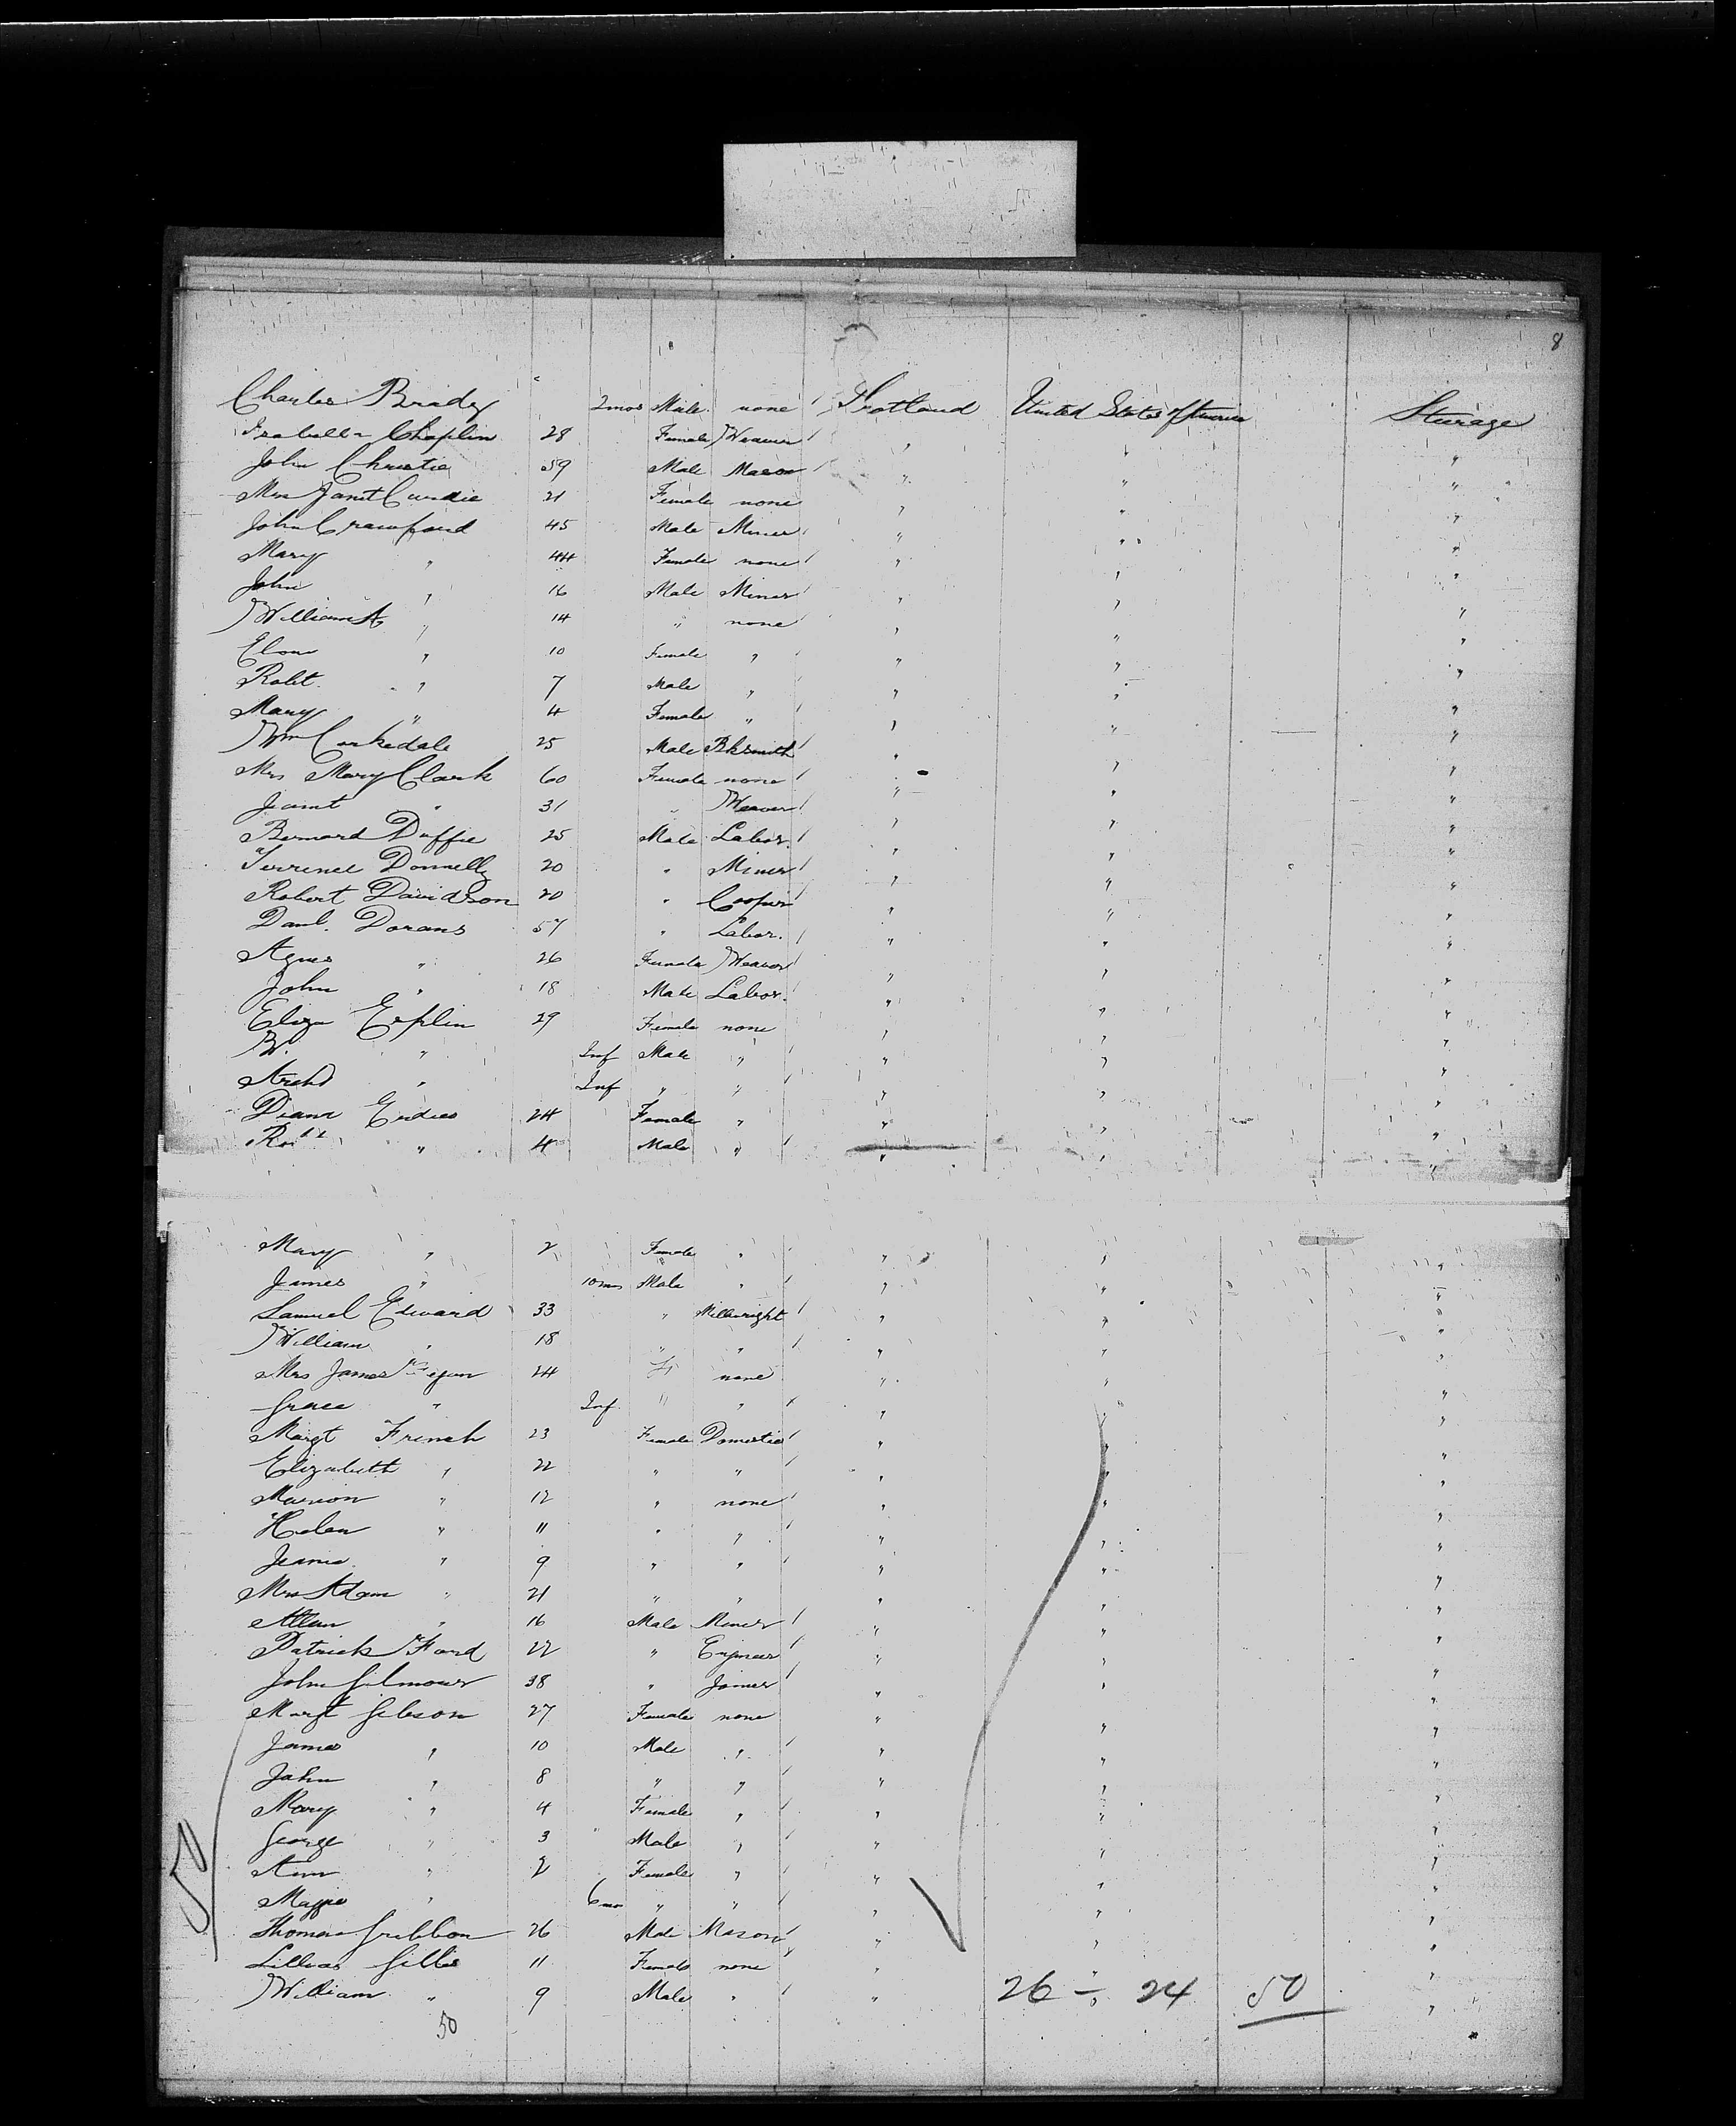 8
Charles Brady 2mos Male none Scotland United States of America Steerage
Isabella Chaplin 28 Female Weaver " " "
John Christie 59 Male Mason " " "
Mrs Janet Cundie 21 Female none " " "
John Crawford 45 Male Miner " " "
Mary " 44 Female none " " "
John " 16 Male Miner " " "
William A " 14 " none " " "
Elon " 10 Female " " " "
Robt. " 7 Male " " " "
Mary " 4 Female " " " "
Wm Corkedale 25 Male Bksmith " " "
Mrs Mary Clark 60 Female none " " "
Jeant " 31 " Weaver " " "
Bernard Duffie 25 Male Labor. " " "
Terrence Donnelly 20 " Miner " " "
Robert Davidson 20 " Cooper " " "
Danl. Dorans 57 " Labor. " " "
Agnes " 26 Female Weaver " " "
John " 18 Male Labor. " " "
Eliza Esplin 29 Female none " " "
W. " Inf Male " " " "
Archd " Inf " " " " "
Diana 24 Female " " " "
Robt. " 4 Male " " " "
Mary " 2 Female " " " "
James " 10mos Male " " " "
Samuel Edward 33 " Millwright " " "
William " 18 " " " " "
Mrs James 24 none " " "
Grace " Inf. " " " " "
Margt French 23 Female Domestic " " "
Elizabeth " 22 " " " " "
Marion " 12 " none " " "
Helen " 11 " " " " "
Jeanie " 9 " " " " "
Mrs Adam " 21 " " " " "
Allan " 16 Male Miner " " "
Patrick Ford 22 " Engineer " " "
John Gilmour 38 " Joiner " " "
Margt Gibson 27 Female none " " "
James " 10 Male " " " "
John " 8 " " " " "
Mary " 4 Female " " " "
George " 3 Male " " " "
Ann " 2 Female " " " "
Maggie " 6mos " " " " "
Thomas Gribbon 26 Male Mason " " "
Lillias Gillis 11 Female none " " "
William " 9 Male " " " "
26 - 24 50
50
50